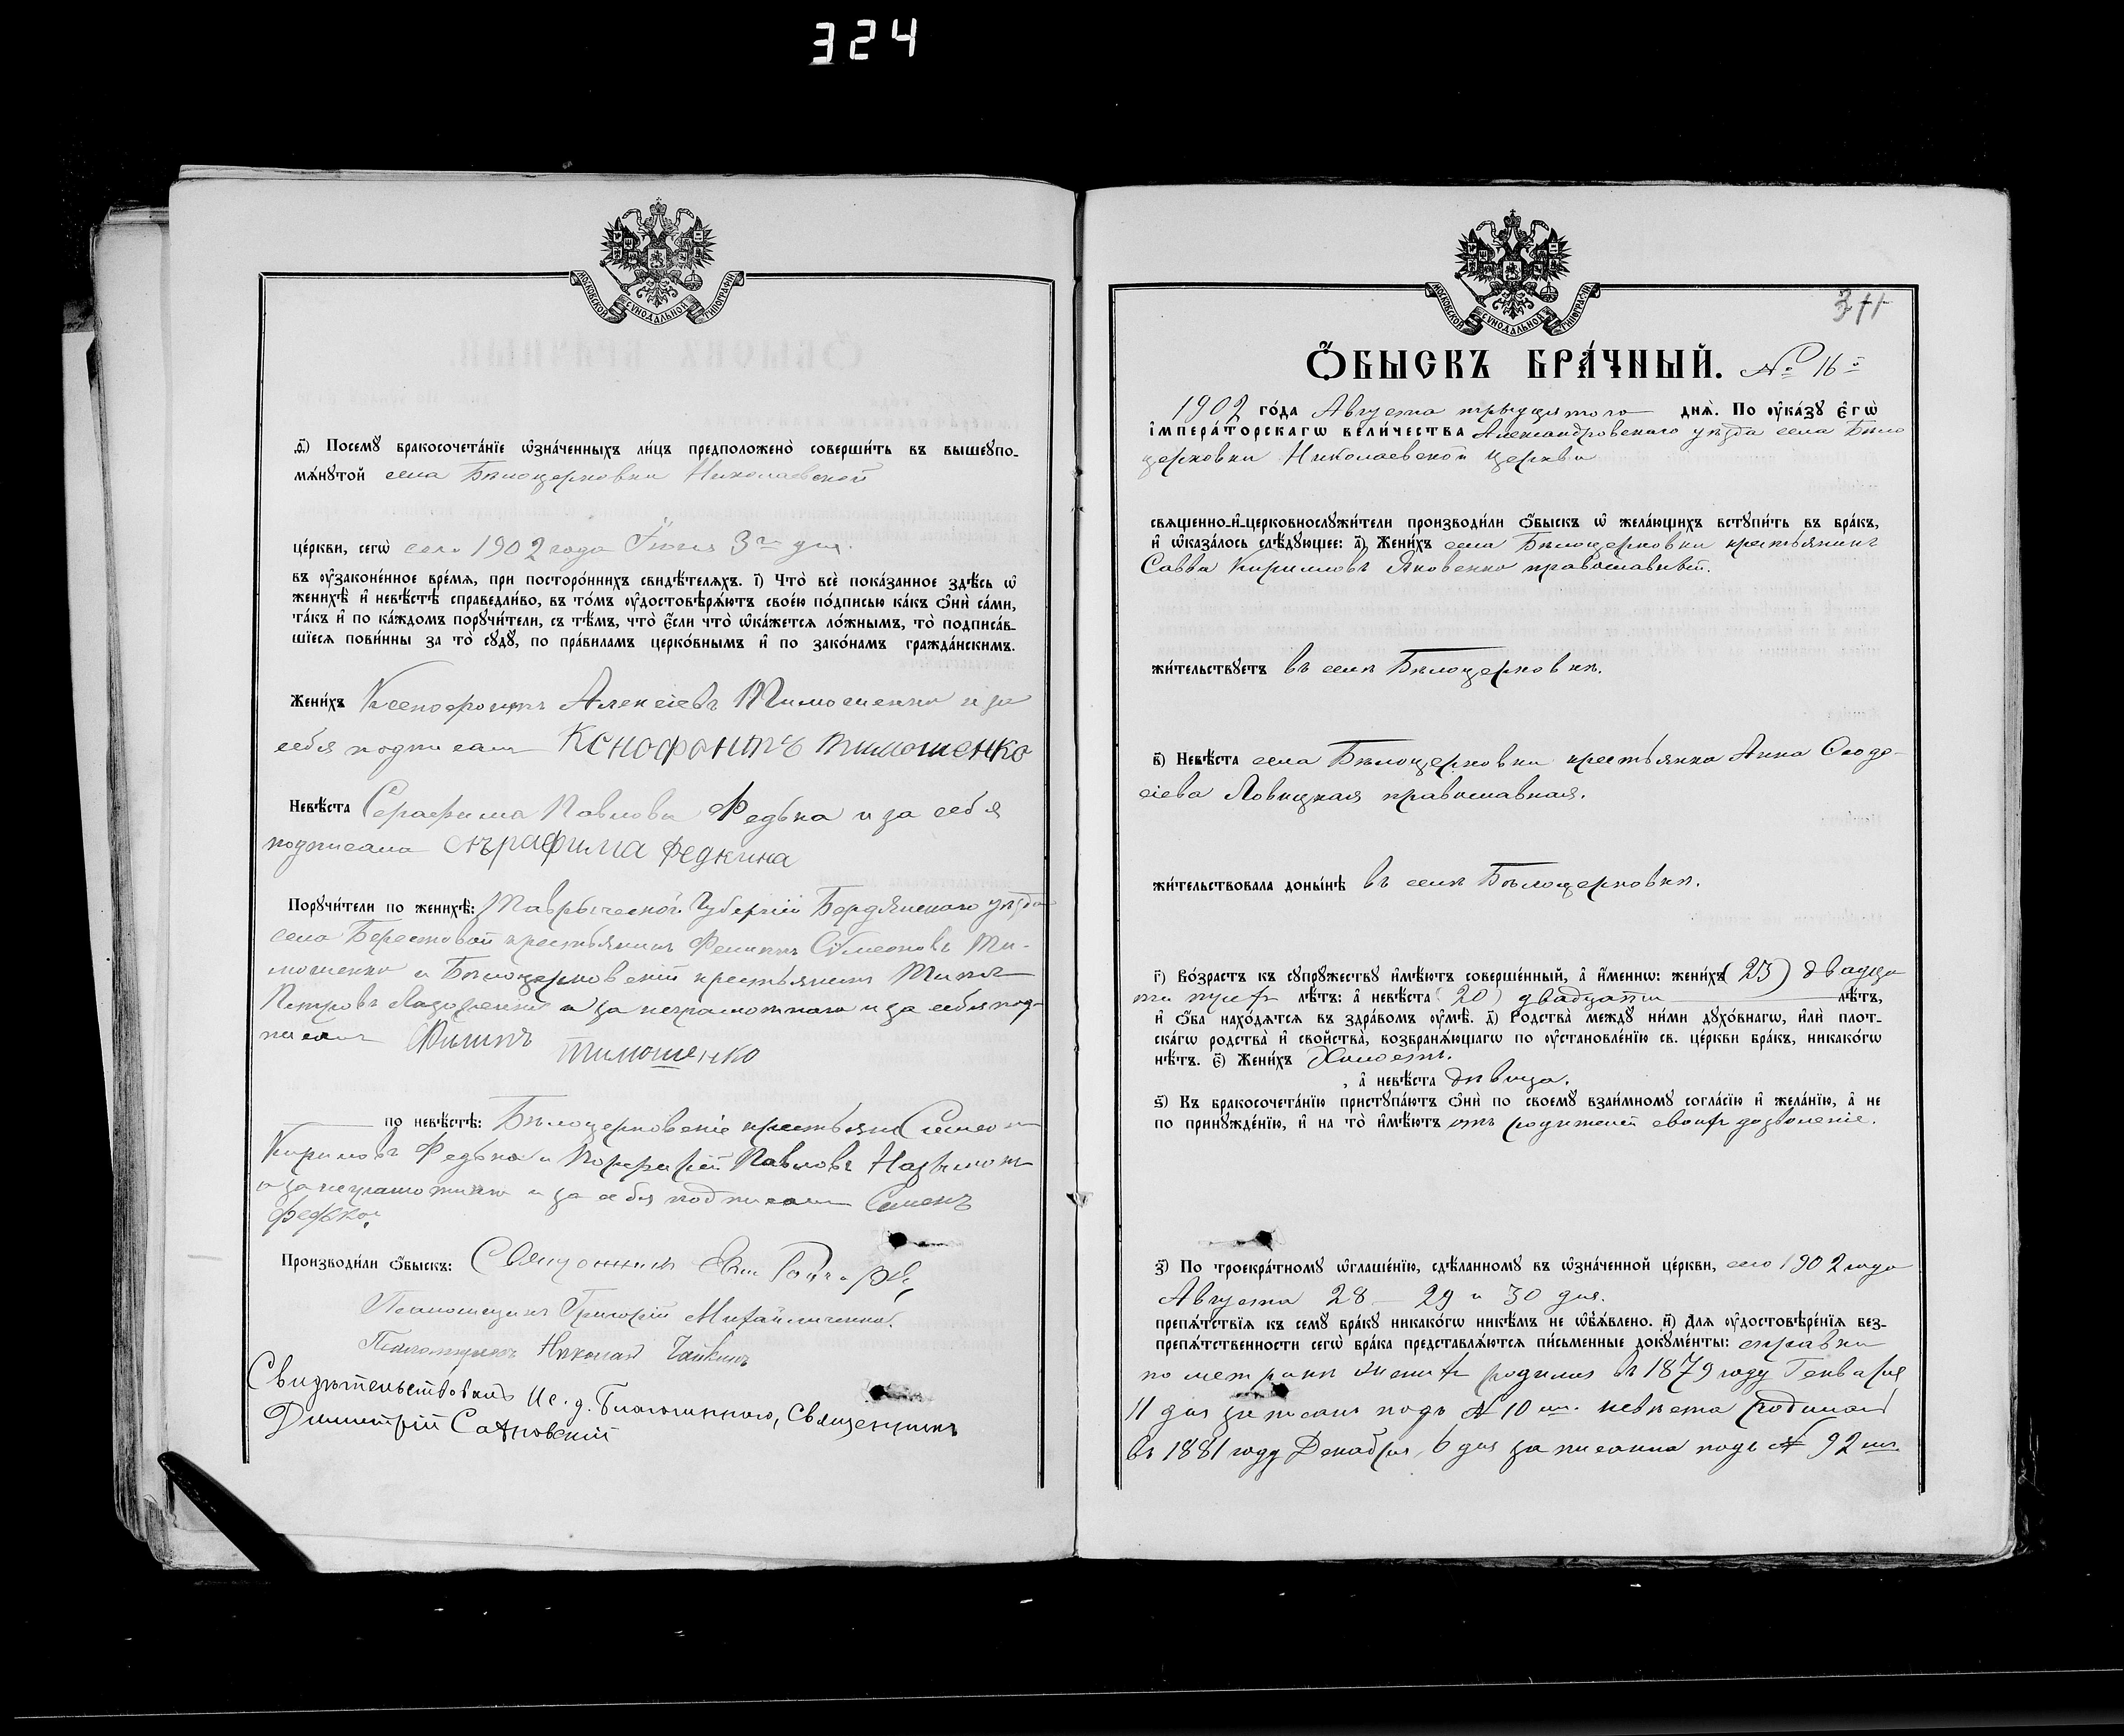 324
МОСКОВСКОЙ СѴНОДАЛЬНОЙ ТИПОГРАФІИ
Посемꙋ бракосочета́нїе ѡ҆зна́ченныхъ ли́цъ предположено̀ соверши́ть въ вышеꙋпо-
мѧ́нꙋтой села Бѣлоцерковки Николаевской
це́ркви, сегѡ̀ сего 1902 года Іюня 3го дня.
въ ᲂу҆законе́нное вре́мѧ, при посторо́ннихъ свидѣ́телѧхъ. і҃) Что̀ всѐ пока́занное здѣ́сь ѡ҆
женихѣ̀ и҆ невѣ́стѣ справедли́во, въ то́мъ ᲂу҆достовѣрѧ́ютъ свое́ю по́дписью ка́къ ѻ҆нѝ са́ми,
та́къ и҆ по ка́ждомъ порꙋчи́тели, съ тѣ́мъ, что̀ є҆́сли что̀ ѡ҆ка́жетсѧ ло́жнымъ, то̀ подписа́в-
шїесѧ пови́нны за то̀ сꙋдꙋ̀, по пра́виламъ церко́внымъ и҆ по зако́намъ гражда́нскимъ.
Жени́хъ Ксенофонтъ Алексіевъ Тимошенко и за
себя подписалъ Кснофонтъ тимошенко
Невѣ́ста Серафима Павлова Федька и за себя
подписала сърафима Федкина
Порꙋчи́тели по женихѣ̀: Таврической Губерніи Бердянскаго уѣзда
села Берестовой крестьянинъ Филипъ Сѵмеоновъ Ти-
мошенко и Бѣлоцерковскій крестьянинъ
Петровъ и за неграмотнаго и за себя под-
писалъ Филипъ тимошенко
по невѣ́стѣ: Бѣлоцерковскіе крестьяне Симеонъ
Кириловъ Федька и Порфирій Павловъ
и за неграмотнаго и за себя подписалъ Семенъ
федька.
Производи́ли ѻ҆́быскъ: Священникъ
Псаломщикъ Григорій Михайличенко.
Псаломщикъ Николай Чайкинъ
Свидѣтельствовалъ И. д. Благочиннаго, Священникъ
Димитрій Садковскій
МОСКОВСКОЙ СѴНОДАЛЬНОЙ ТИПОГРАФІИ
Ѻ҆́БЫСКЪ БРА́ЧНЫЙ. № 16й
1902 го́да Августа тридцятого днѧ̀. По ᲂу҆ка́зꙋ є҆гѡ̀
і҆мпера́торскагѡ вели́чества Александровскаго уѣзда села Бѣло
церковки Николаевской церкви
свѧщенно-и҆-церковнослꙋжи́тели производи́ли ѻ҆́быскъ ѡ҆ жела́ющихъ встꙋпи́ть въ бра́къ,
и҆ ѡ҆каза́лось слѣ́дꙋющее: а҃) Жени́хъ села Бѣлоцерковки крестьянинъ
Савва Кириловъ Яковенко православный.
жи́тельствꙋетъ въ селѣ Бѣлоцерковкѣ.
в҃) Невѣ́ста села Бѣлоцерковки крестьянка Анна Ѳеодо-
сіева Ловицкая православная.
жи́тельствовала доны́нѣ въ селѣ Бѣлоцерковкѣ.
г҃) Во́зрастъ къ сꙋпрꙋ́жествꙋ и҆мѣ́ютъ соверше́нный, а҆ и҆́меннѡ: жени́хъ (23) двадца
ти трехъ лѣ́тъ: а҆ невѣ́ста (20) двадцати лѣ́тъ,
и҆ ѻ҆́ба нахо́дѧтсѧ въ здра́вомъ ᲂу҆мѣ̀. д҃) Родства̀ междꙋ ни́ми дꙋхо́внагѡ, и҆лѝ плот-
ска́гѡ родства̀ и҆ свойства̀, возбранѧ́ющагѡ по ᲂу҆становле́нїю св. це́ркви бра́къ, никако́гѡ
нѣ́тъ. є҃) Жени́хъ Холостъ.
, а҆ невѣ́ста дѣвица.
ѕ҃) Къ бракосочета́нїю пристꙋпа́ютъ ѻ҆нѝ по своемꙋ̀ взаи́мномꙋ согла́сїю и҆ жела́нїю, а҆ не
по принꙋжде́нїю, и҆ на то̀ и҆мѣ́ютъ отъ родителей своихъ дозволеніе.
з҃) По троекра́тномꙋ ѡ҆глаше́нїю, сдѣ́ланномꙋ въ ѡ҆зна́ченной це́ркви, сего 1902 года
Августа 28 - 29 и 30 дня.
препѧ́тствїѧ къ семꙋ̀ бра́кꙋ никако́гѡ никѣ́мъ не ѡ҆б̾ѧ́влено. и҃) Для ᲂу҆достовѣре́нїѧ без-
препѧ́тственности сегѡ̀ бра́ка представлѧ́ютсѧ пи́сьменные докꙋме́нты: справки
по метрикѣ женихъ родился въ 1879 году Генваря
11 дня записанъ подъ № 10 мъ. невѣста родилась
въ 1881 году Декабря 6 дня записана подъ № 92 мъ.